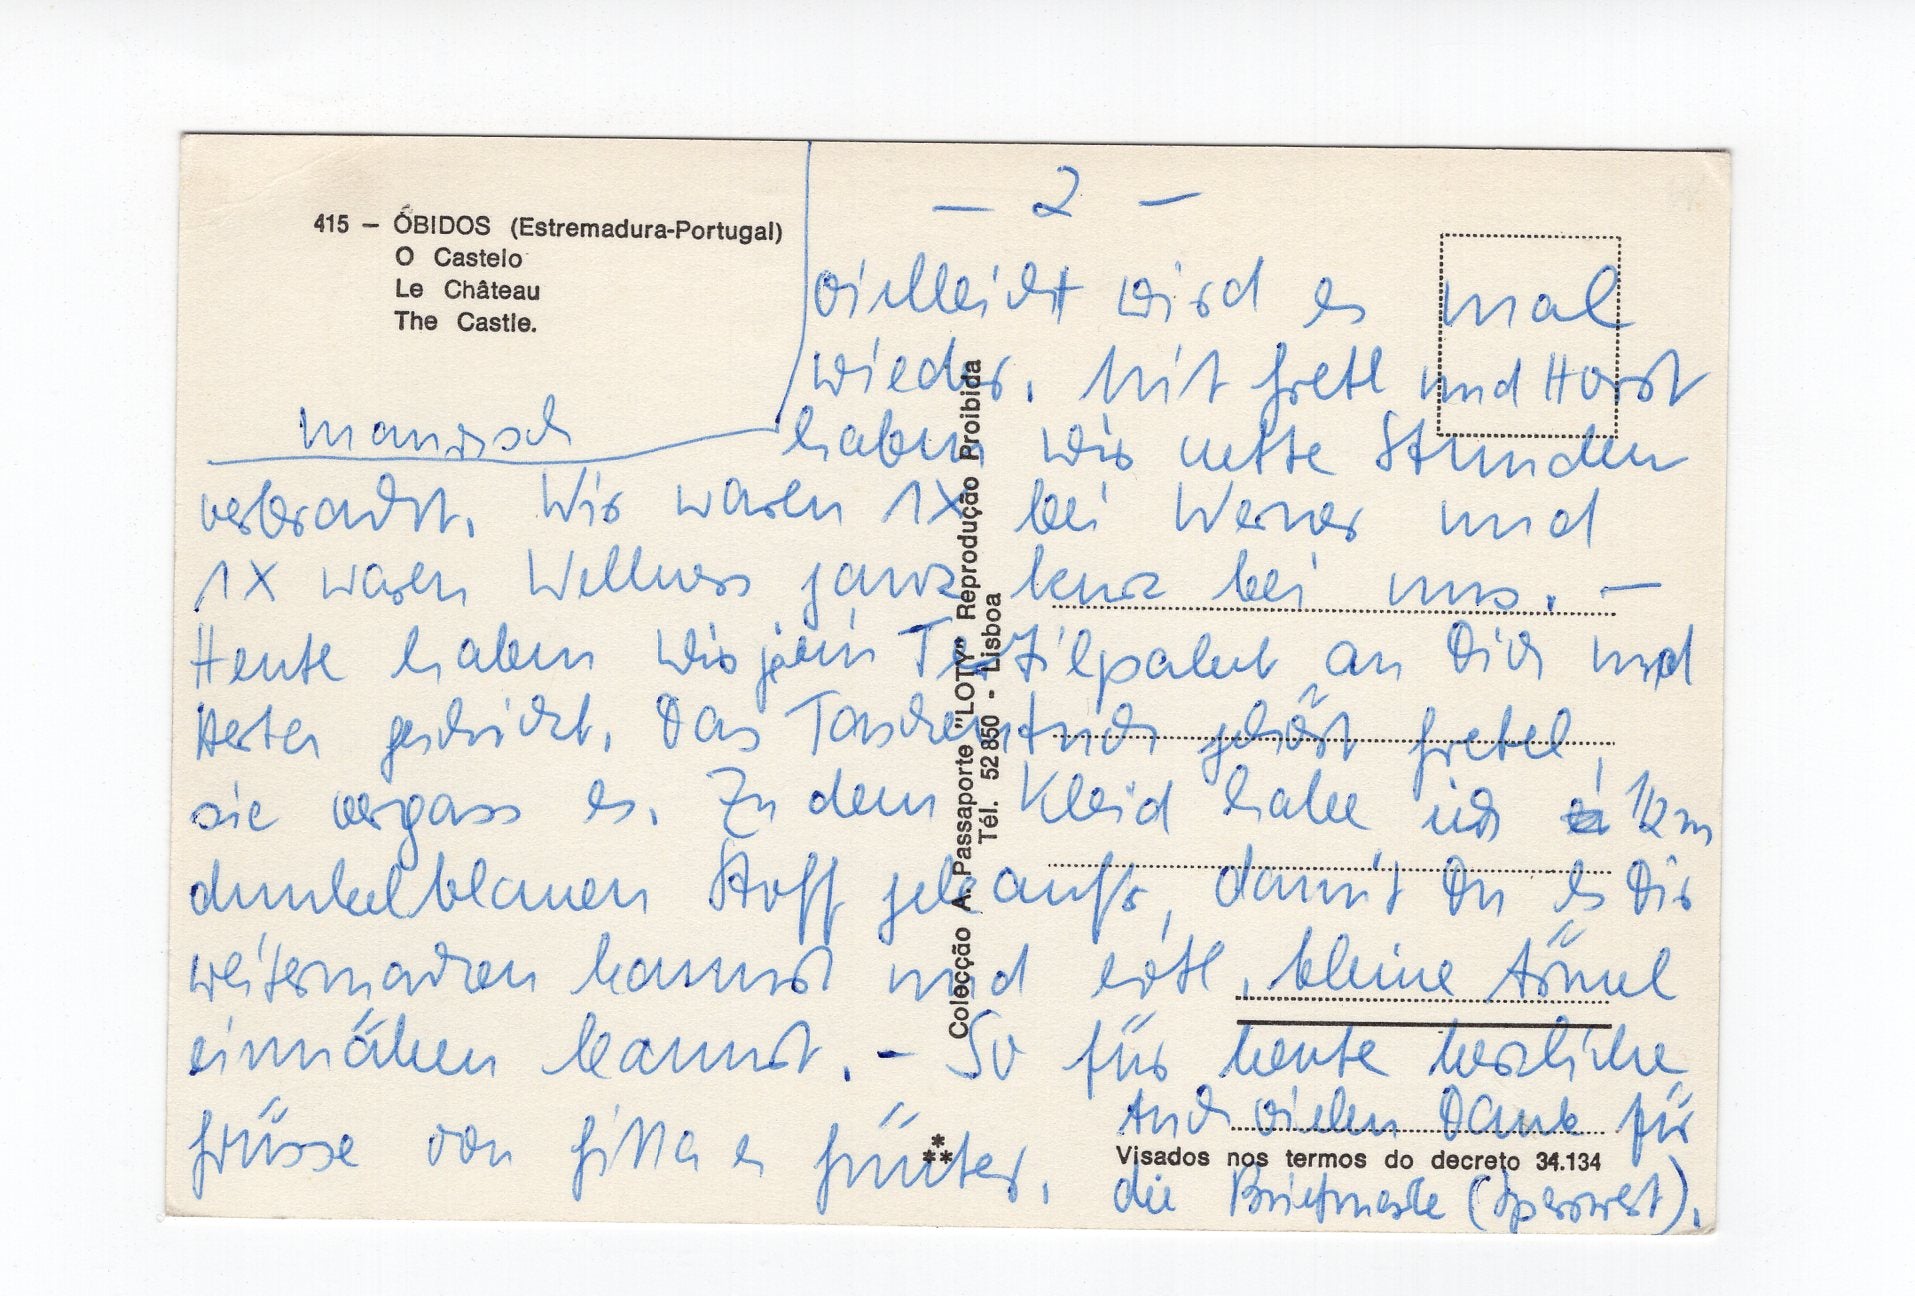 415 — ÓBIDOS (Estremadura-Portugal)
O Castelo
Le Château
The Castle.
— 2 —
vielleicht wird es mal
wieder. Mit Gretl und Horst
haben wir nette Stunden
verbracht. Wir waren 1X bei Werner und
1X waren ganz kurz bei uns. —
Heute haben wir ein Textilpaket an Dich und
geschickt. Das Taschentuch gehört Gretel,
sie vergass es. Zu dem Kleid habe ich 1/2 m
dunkelblauen Stoff gekauft, damit Du es Dir
weitermachen kannst und evtl. kleine Ärmel
einnähen kannst. – So für heute herzliche
Grüsse von Gitta u Günter.
Auch vielen Dank für
die Briefmarke (Sperrwert).
Colecção A. Passaporte "LOTY" Reprodução Proibida
Tél. 52 850 - Lisboa
Visados nos termos do decreto 34.134